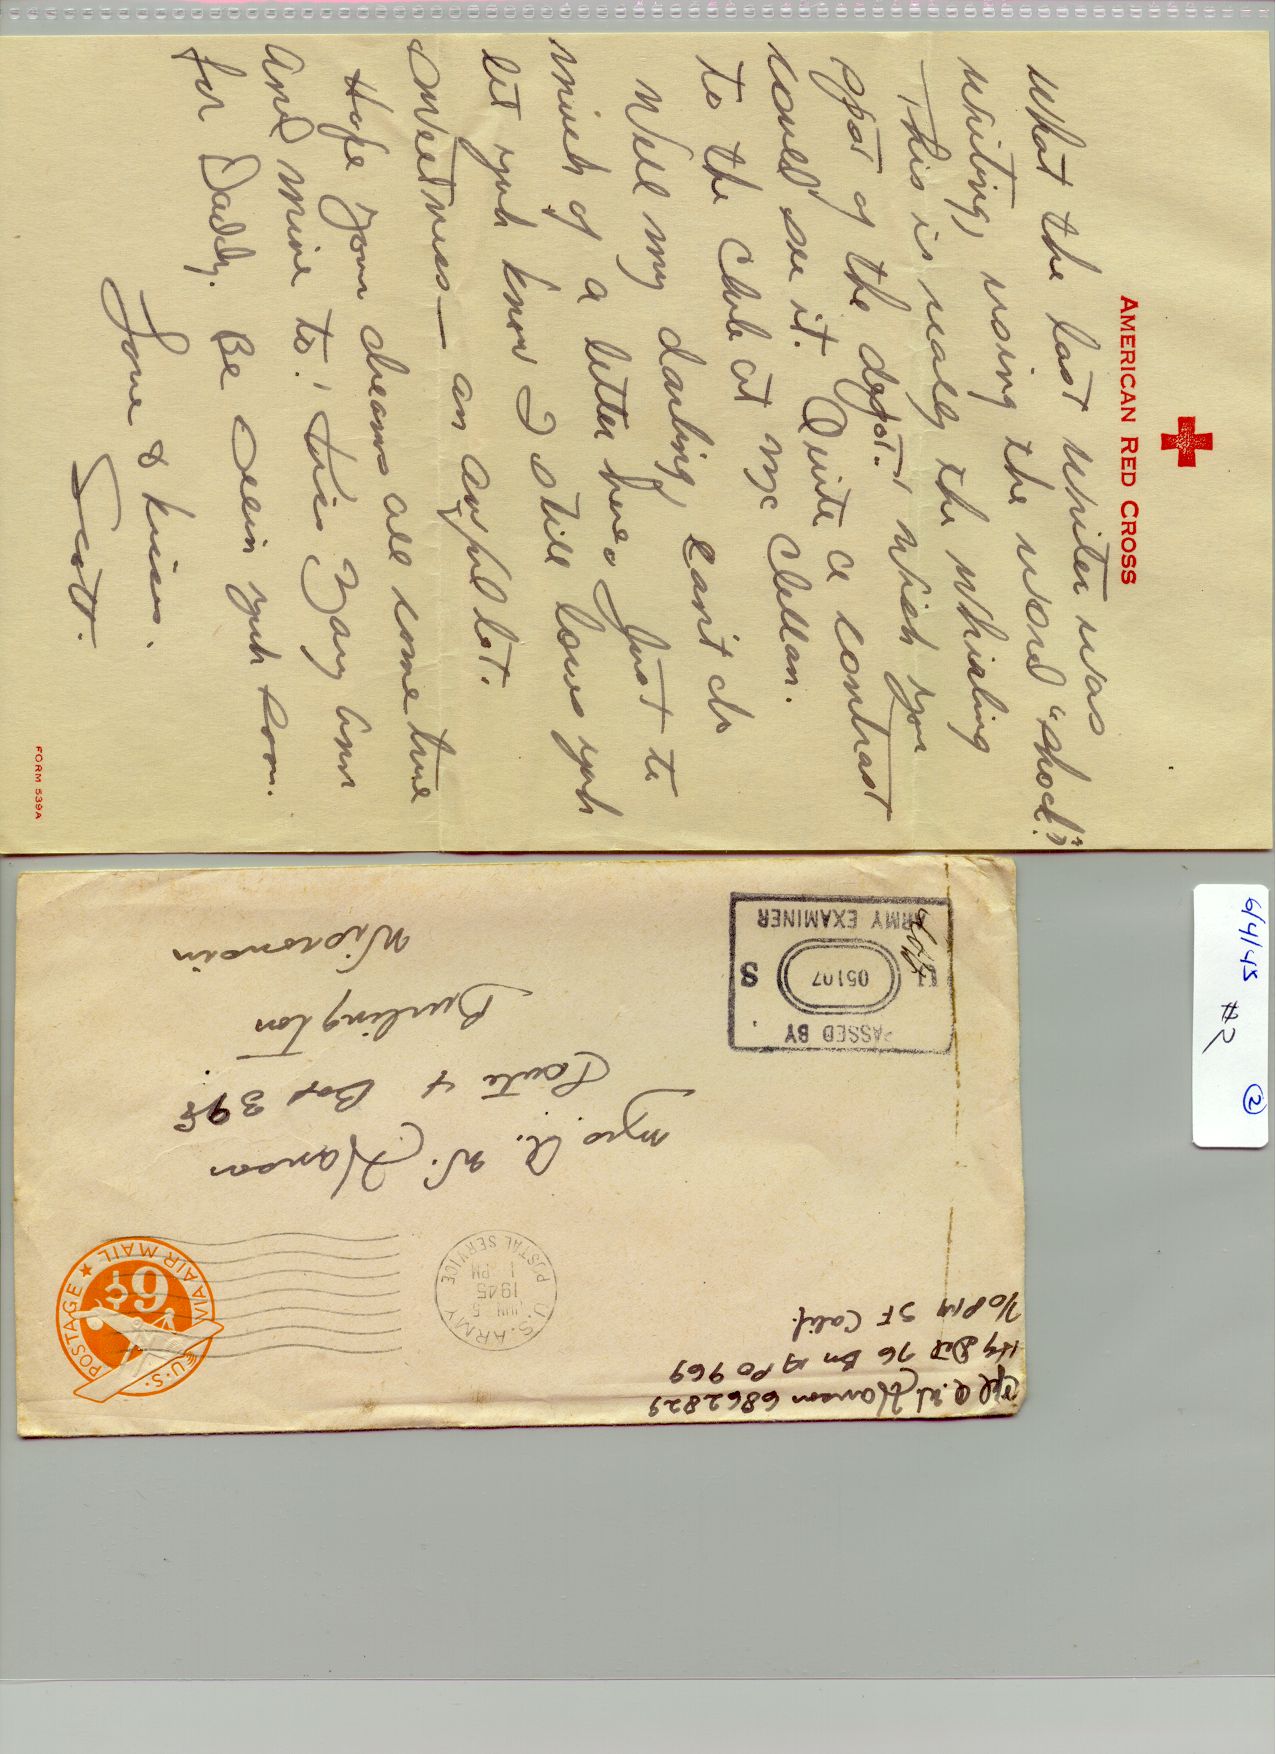 AMERICAN RED CROSS
What the last writer was
writing, using the word "shock"?
This is really the whirling
spot of the dept. Wish you
could see it. Quite a contrast
to the Club at Mc Clellan.
Well my darling, can't do
much of a letter here. Just to
let yuh know I still love yuh
sweetness — an awful lot.
Hope your dreams all come true
and mine to! Kiss Mary Ann
for Daddy. Be seein yuh soon.
Love & kisses.
Scott.
FORM 539A
6/4/45 #2 2
Cpl A. W. Hanson 6862829
Hq Det 76 Bn APO 969
c/o PM SF Calif.
U.S. POSTAGE
VIA AIR MAIL
6¢
U.S. ARMY
JUN 5
1945
1 PM
POSTAL SERVICE
Mrs A. W. Hanson
Route 4 Box 398
Burlington
Wisconsin
PASSED BY
05107 S
ARMY EXAMINER